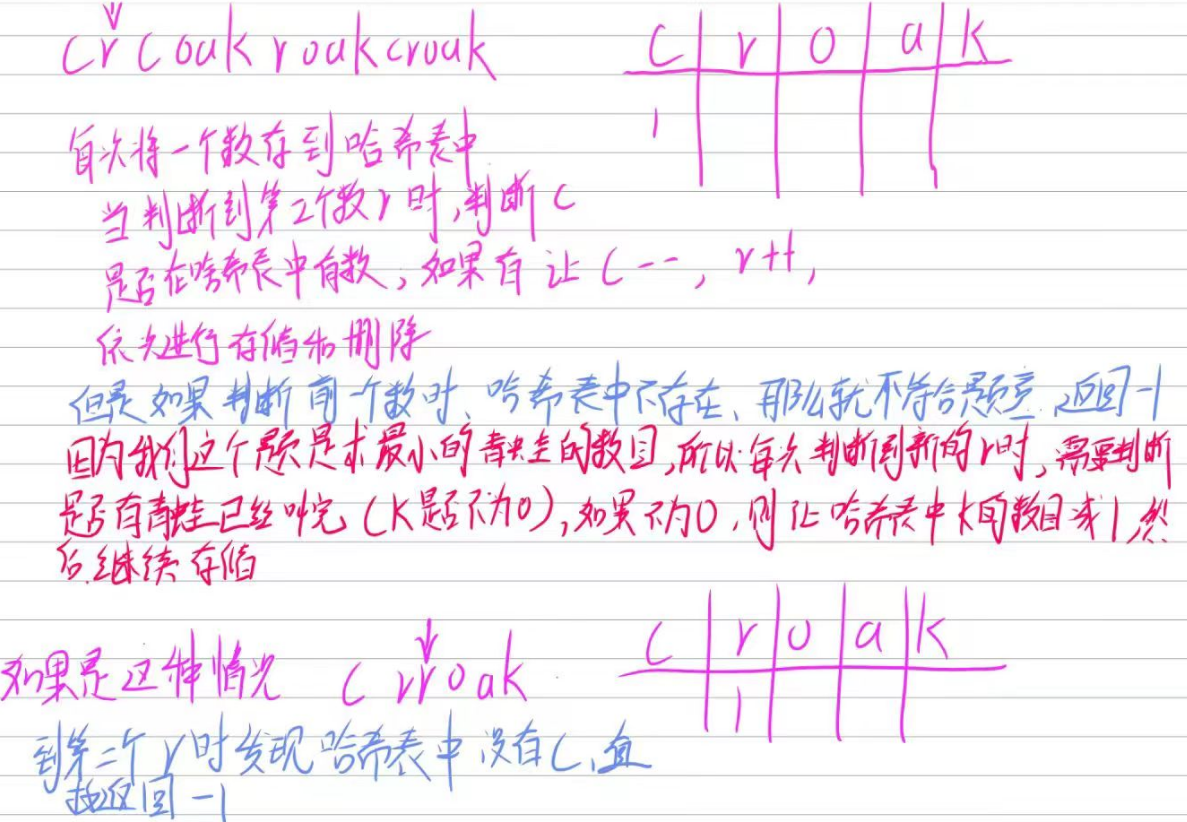 crcoakroakcroak c r o a k
1
每次将一个数存到哈希表中
当判断到第2个数r时,判断c
是否在哈希表中有数,如果有 让 c--, r++,
依次进行存储和删除
但是如果判断前一个数时、哈希表中不存在、那么就不符合题意、返回-1
因为我们这个题是求最小的青蛙的数目,所以每次判断到新的r时,需要判断
是否有青蛙已经叫完(K是否不为0),如果不为0,则让哈希表中k的数目减1,然
后继续存储
如果是这种情况 crroak c r o a k
1
到第二个r时发现哈希表中没有c,直
接返回-1